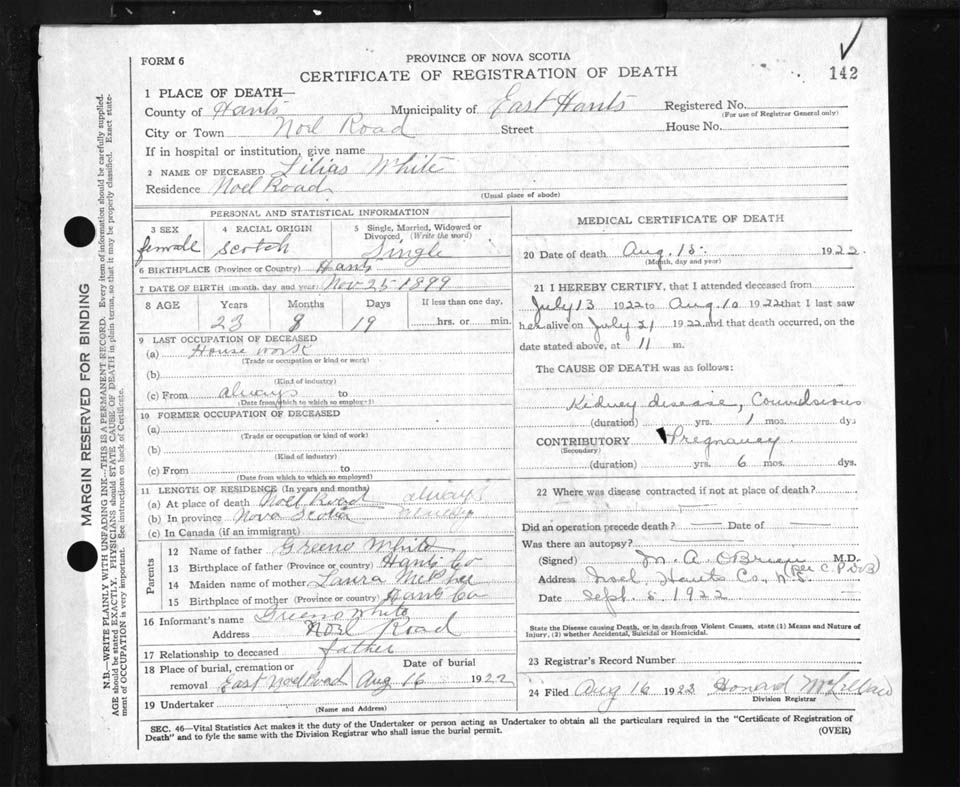 FORM 6
PROVINCE OF NOVA SCOTIA
CERTIFICATE OF REGISTRATION OF DEATH
142
1 PLACE OF DEATH—
County of Hants Municipality of East Hants Registered No.
(For use of Registrar General only)
City or Town Noel Road Street House No.
If in hospital or institution, give name
2 NAME OF DECEASED Lilias White
Residence Noel Road
(Usual place of abode)
PERSONAL AND STATISTICAL INFORMATION
3 SEX 4 RACIAL ORIGIN 5 Single, Married, Widowed or Divorced, (Write the word)
female Scotch Single
6 BIRTHPLACE (Province or Country) Hants
7 DATE OF BIRTH (month, day and year) Nov 25 1899
8 AGE Years Months Days If less than one day,
23 8 19 hrs. or min.
9 LAST OCCUPATION OF DECEASED
(a) House work
(Trade or occupation or kind or work)
(b)
(Kind of industry)
(c) From always to
(Date from which to which so employed)
10 FORMER OCCUPATION OF DECEASED
(a)
(Trade or occupation or kind of work)
(b)
(Kind of industry)
(c) From to
(Date from which to which so employed)
11 LENGTH OF RESIDENCE (In years and months)
(a) At place of death Noel Road always
(b) In province Nova Scotia
(c) In Canada (if an immigrant)
Parents
12 Name of father Greeno White
13 Birthplace of father (Province or country) Hants Co
14 Maiden name of mother Laura McPhee
15 Birthplace of mother (Province or country) Hants Co
16 Informant's name Greeno White
Address Noel Road
17 Relationship to deceased father
18 Place of burial, cremation or removal East Noel Road Date of burial Aug 16 1922
19 Undertaker
(Name and Address)
MEDICAL CERTIFICATE OF DEATH
20 Date of death Aug. 15 1922
(Month, day and year)
21 I HEREBY CERTIFY, that I attended deceased from
July 13 1922 to Aug. 10 1922 that I last saw
her alive on July 21 1922 and that death occurred, on the
date stated above, at 11 m.
The CAUSE OF DEATH was as follows:
Kidney disease, Convulsions
(duration) yrs. 1 mos. dys
CONTRIBUTORY Pregnancy
(Secondary)
(duration) yrs. 6 mos. dys.
22 Where was disease contracted if not at place of death?
Did an operation precede death? — Date of —
Was there an autopsy?
(Signed) M. A. O'Brien M.D.
Address Noel, Hants Co., N.S.
Date Sept. 5. 1922
State the Disease causing Death, or in death from Violent Causes, state (1) Means and Nature of
Injury, (2) whether Accidental, Suicidal or Homicidal.
23 Registrar's Record Number
24 Filed Aug 16 1922 Howard
Division Registrar
SEC. 46—Vital Statistics Act makes it the duty of the Undertaker or person acting as Undertaker to obtain all the particulars required in the "Certificate of Registration of
Death" and to fyle the same with the Division Registrar who shall issue the burial permit.
(OVER)
MARGIN RESERVED FOR BINDING
N.B.—WRITE PLAINLY WITH UNFADING INK—THIS IS A PERMANENT RECORD. Every item of information should be carefully supplied.
AGE should be stated EXACTLY. PHYSICIANS should STATE CAUSE OF DEATH in plain terms, so that it may be properly classified. Exact state-
ment of OCCUPATION is very important. See instructions on back of Certificate.